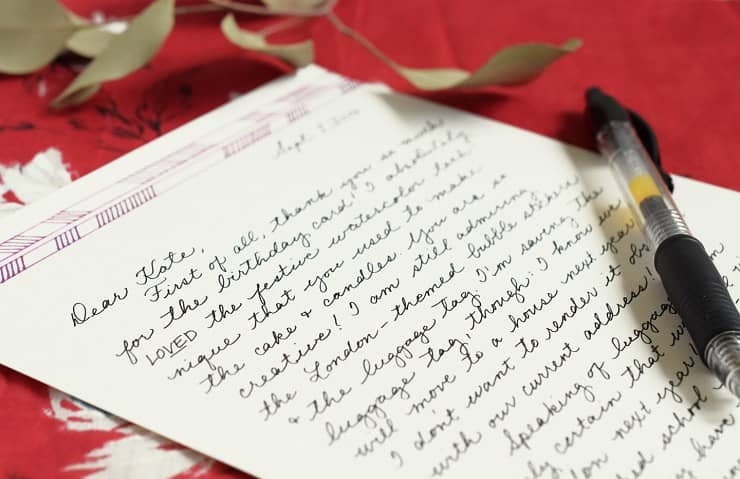 Sept.
Dear Kate,
First of all, thank you so much
for the birthday card! I absolutely
LOVED the festive watercolor tech-
nique that you used to make
the cake & candles. You are so
creative! I am still admiring
the London-themed bubble stickers
& the luggage tag. I'm saving the
luggage tag, though: I know we
will move to a house next year
I don't want to render it obs
with our current address!
Speaking of luggage
ly certain that w
don next year!
ed school
y have